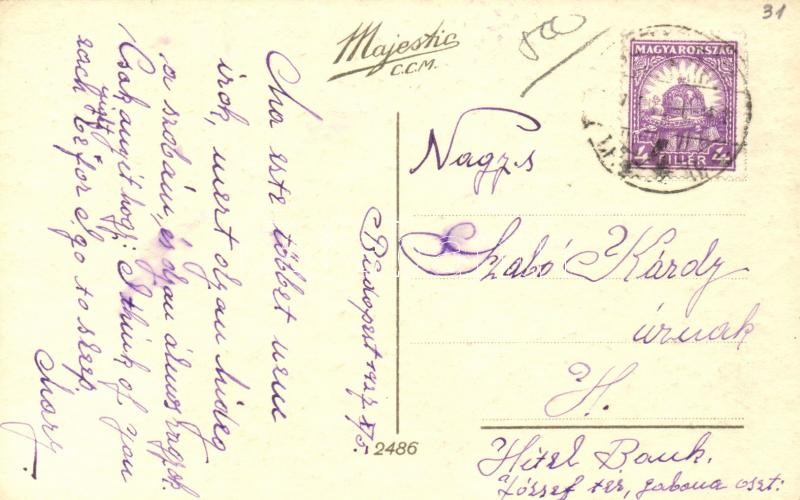 31
Majestic
C.C.M.
500
MAGYARORSZÁG
4 FILLÉR 4
Ma este többet nem
irok, mert olyan hideg
a szobám, és olyan álmos vagyok.
Csak annyit hogy: I think of you
each night befor I go to sleep.
Mary.
Budapest 1927 X/5.
2486
Nagys
Szabó Kárdy
úrnak
H.
Hitel Bank.
József tér, gabona oszt.